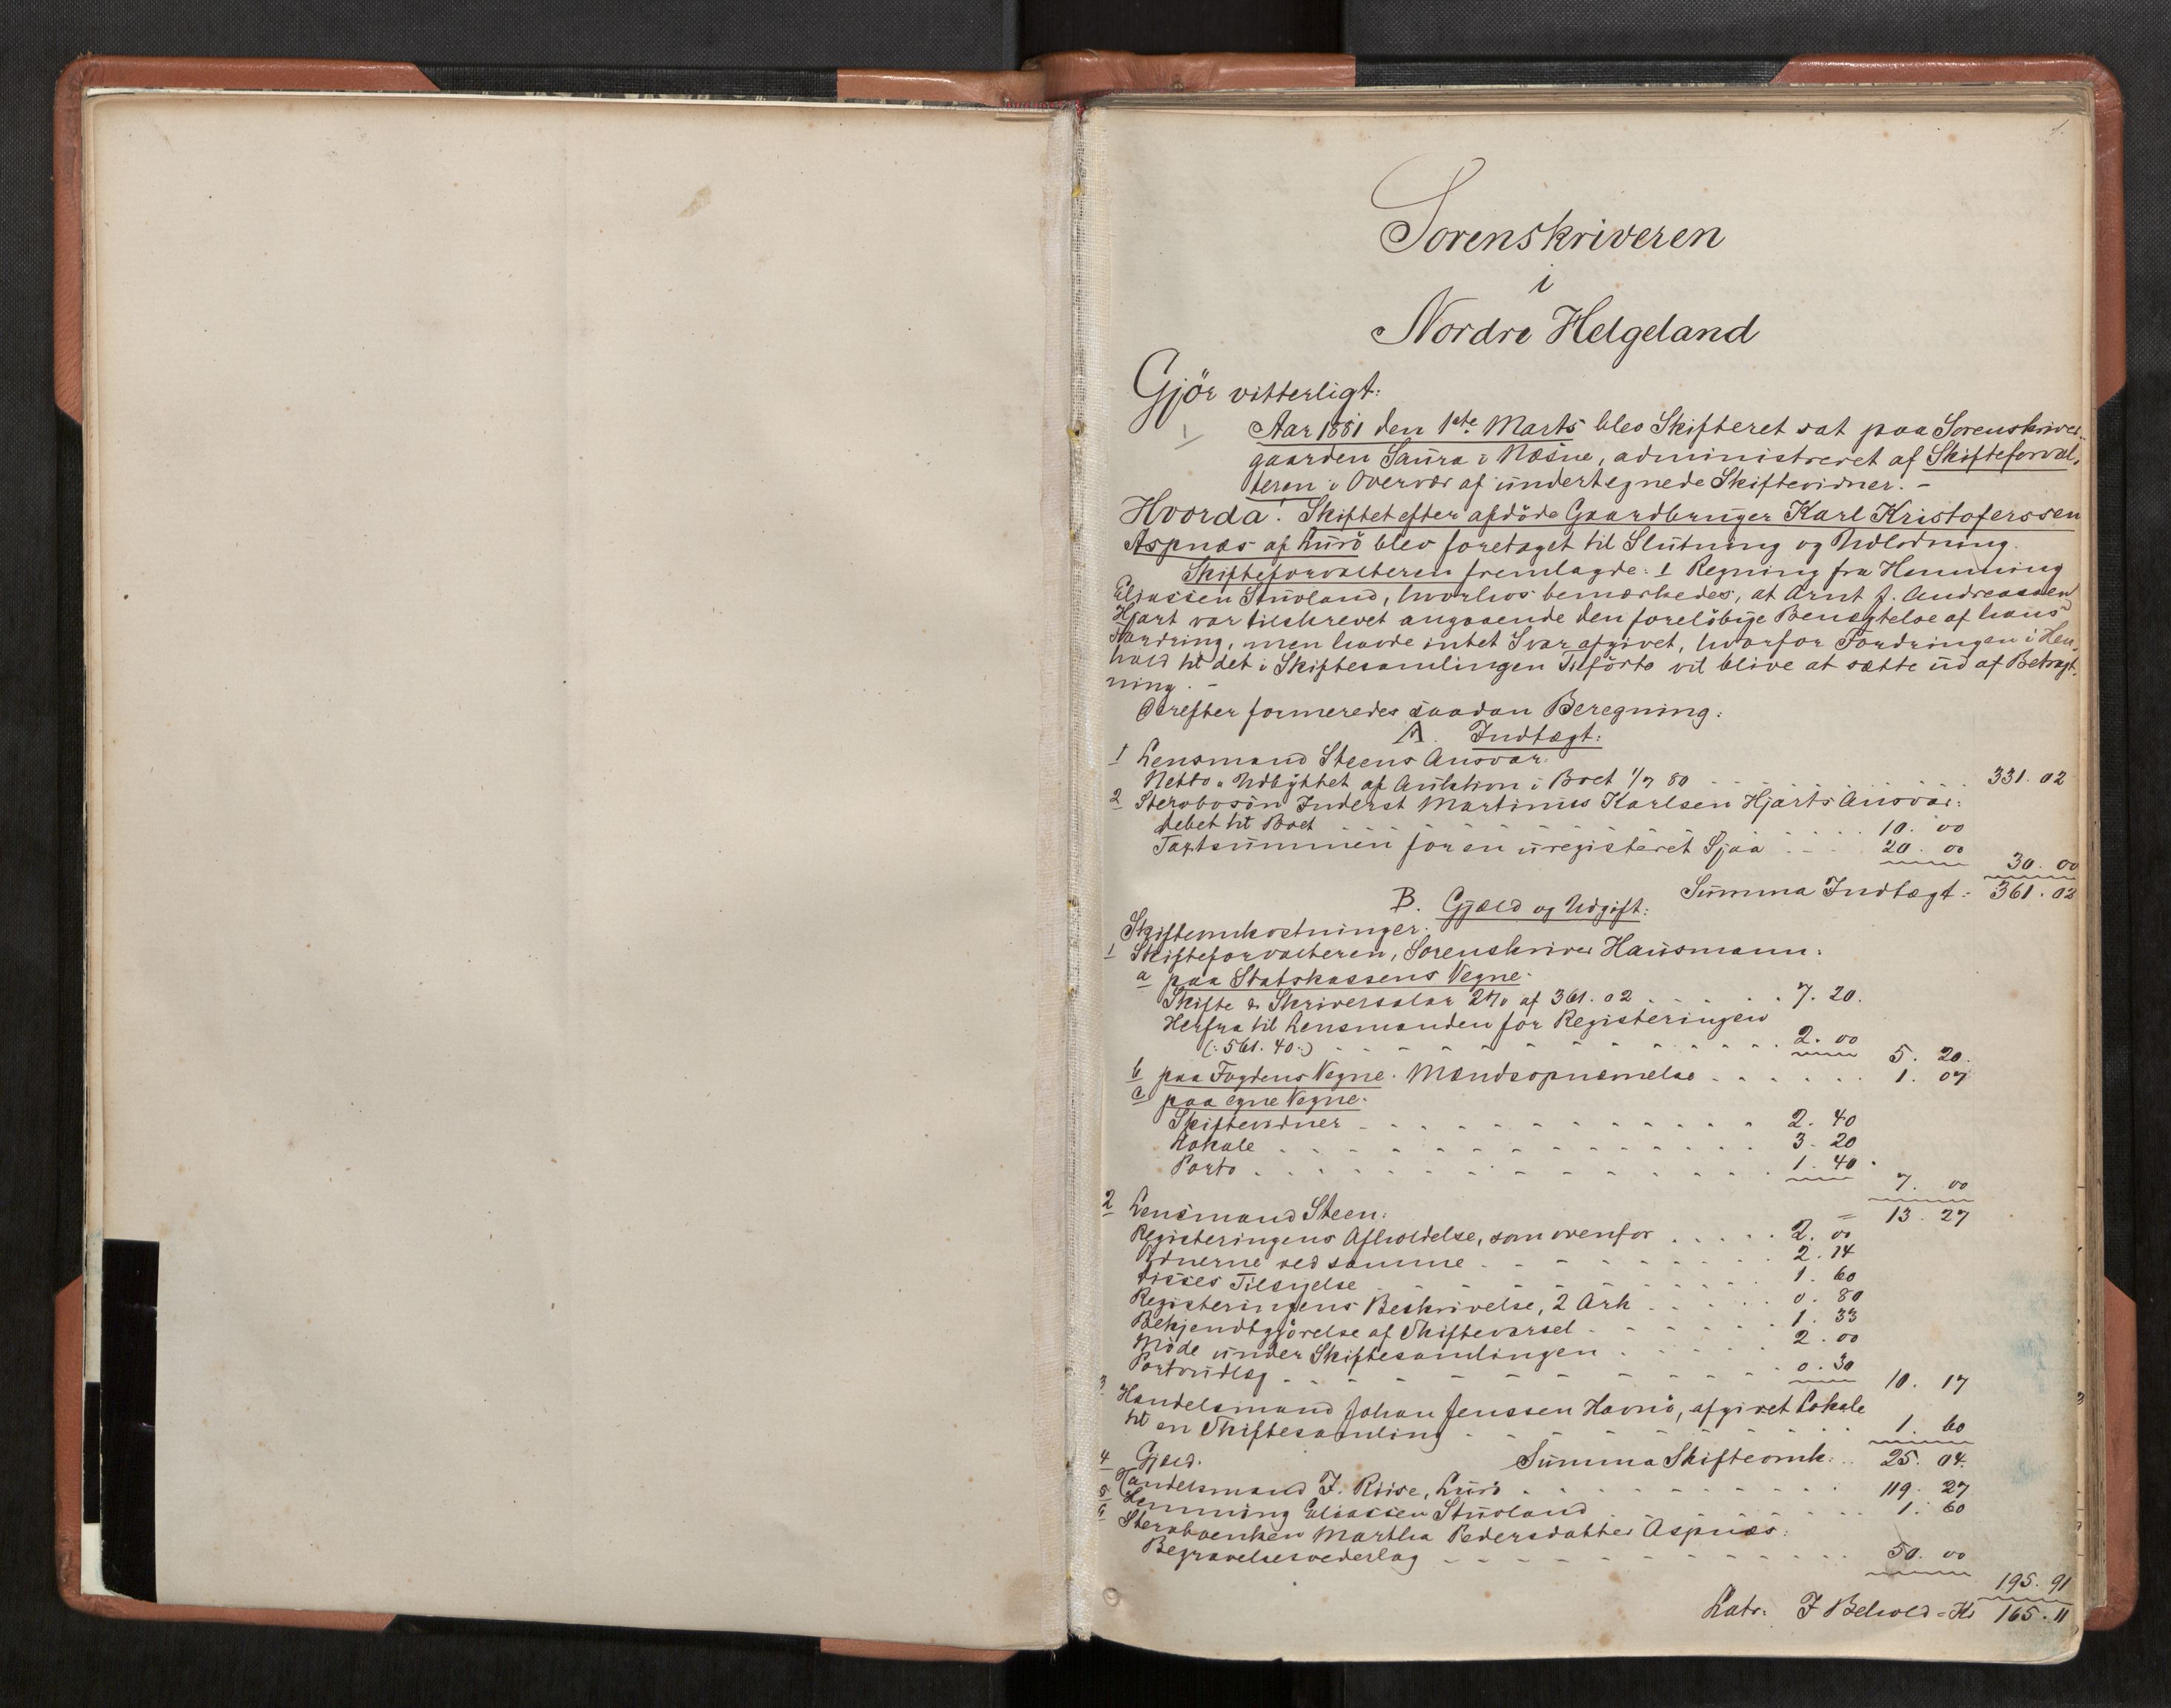 1.
Sorenskriveren
i
Nordre Helgeland
Gjör vitterligt:
1 Aar 1881 den 1ste Marts blev Skifteret sat paa Sorenskriver-
gaarden Saura i Næsne, administreret af Skifteforval-
teren i Overvær af undertegnede Skiftevidner. -
Hvorda: Skiftet efter afdöde Gaardbruger Karl Kristoferssen
Aspnæs af Lurö blev foretaget til Slutning og Udlodning.
Skifteforvalteren fremlagde: 1 Regning fra Hemming
Eliassen Stuvland, hvorhos bemærkedes, at Arnt J. Andreassen
Hjart var tilskrevet angaaende den forelöbige Benægtelse af hans
Fordring, men havde intet Svar afgivet, hvorfor Fordringen i Hen-
hold til det i Skiftesamlingen Tilförte vil blive at sætte ud af Betragt-
ning. -
Derefter formeredes saadan Beregning:
A. Indtægt:
1 Lensmand Steens Ansvar:
Netto-Udbyttet af Auktion i Boet 1/7 80 331. 02
2 Stervbosön Inderst Martinus Karlsen Hjarts Ansvar:
Debet til Boet 10. 00
Taxtsummen for en uregisteret Sjaa 20. 00 30. 00
Summa Indtægt: 361. 02
B. Gjæld og Udgift:
Skifteomkostninger.
1 Skifteforvalteren, Sorenskriver Hausmann:
a paa Statskassens Vegne:
Skifte & Skriversalær 2% af 361. 02 7. 20.
Herfra til Lensmanden for Registeringen
(: 561. 40:) 2. 00 5. 20.
b paa Fogdens Vegne. Mandsopnævnelse 1. 07
c paa egne Vegne:
Skiftevidner 2. 40
Lokale 3. 20
Porto 1. 40. 7. 00
= 13. 27
2 Lensmand Steen:
Registeringens Afholdelse, som ovenfor 2. 00
Vidnerne ved samme 2. 14
Disses Tilsigelse 1. 60
Registeringens Beskrivelse, 2 Ark 0. 80
Bekjendtgjörelse af Skiftevarsel 1. 33
Möde under Skiftesamlingen 2. 00
Portoudlæg 0. 30 10. 17
3 Handelsmand Johan Jenssen Havnö, afgivet Lokale
til en Skiftesamling 1. 60
Summa Skifteomk: 25. 04.
Gjæld.
4 Handelsmand J. Riise, Lurö 119. 27
5 Hemming Eliassen Stuvland 1. 60
6 Stervboenken Martha Pedersdatter Aspnæs:
Begravelsesvederlag 50. 00 195. 91
Latr: I Behold = Kr 165. 11